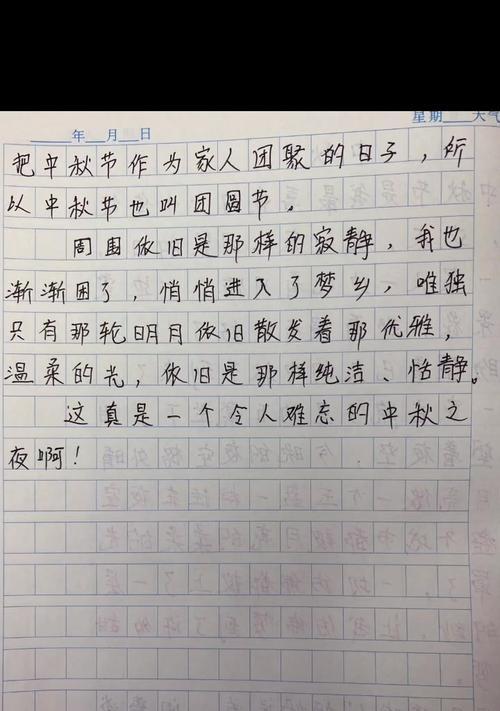 星期 天气
年 月 日
把中秋节作为家人团聚的日子，所
以中秋节也叫团圆节。
周围依旧是那样的寂静，我也
渐渐困了，悄悄进入了梦乡，唯独
只有那轮明月依旧散发着那优雅，
温柔的光，依旧是那样纯洁、恬静。
这真是一个令人难忘的中秋之
夜啊！